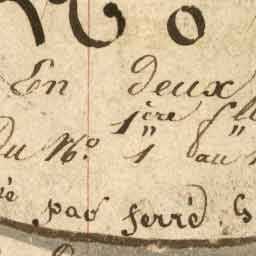 No
En deux
1ère f
Du No. 1 au
pas serré.